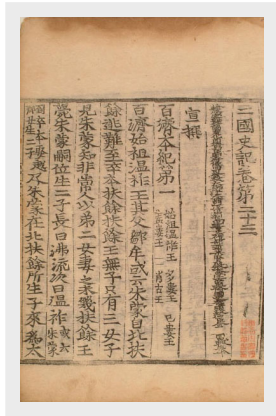 三國史記卷第二十三
宣撰
百濟本紀第一 始祖溫祚王 多婁王 己婁王
百濟始祖溫祚王其父鄒牟或云朱蒙自北扶
餘逃難至卒本扶餘扶餘王無子只有三女子
見朱蒙知非常人以第二女妻之未幾扶餘王
薨朱蒙嗣位生二子長曰沸流次曰溫祚 或云朱蒙
生二子 及朱蒙在北扶餘所生子來爲太